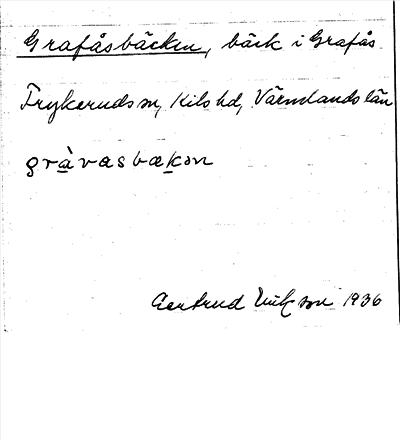 Grafåsbäcken, bäck i Grafås
Frykeruds sn, Kils hd, Värmlands län
gràvasbækən
Gertrud Erikson 1936